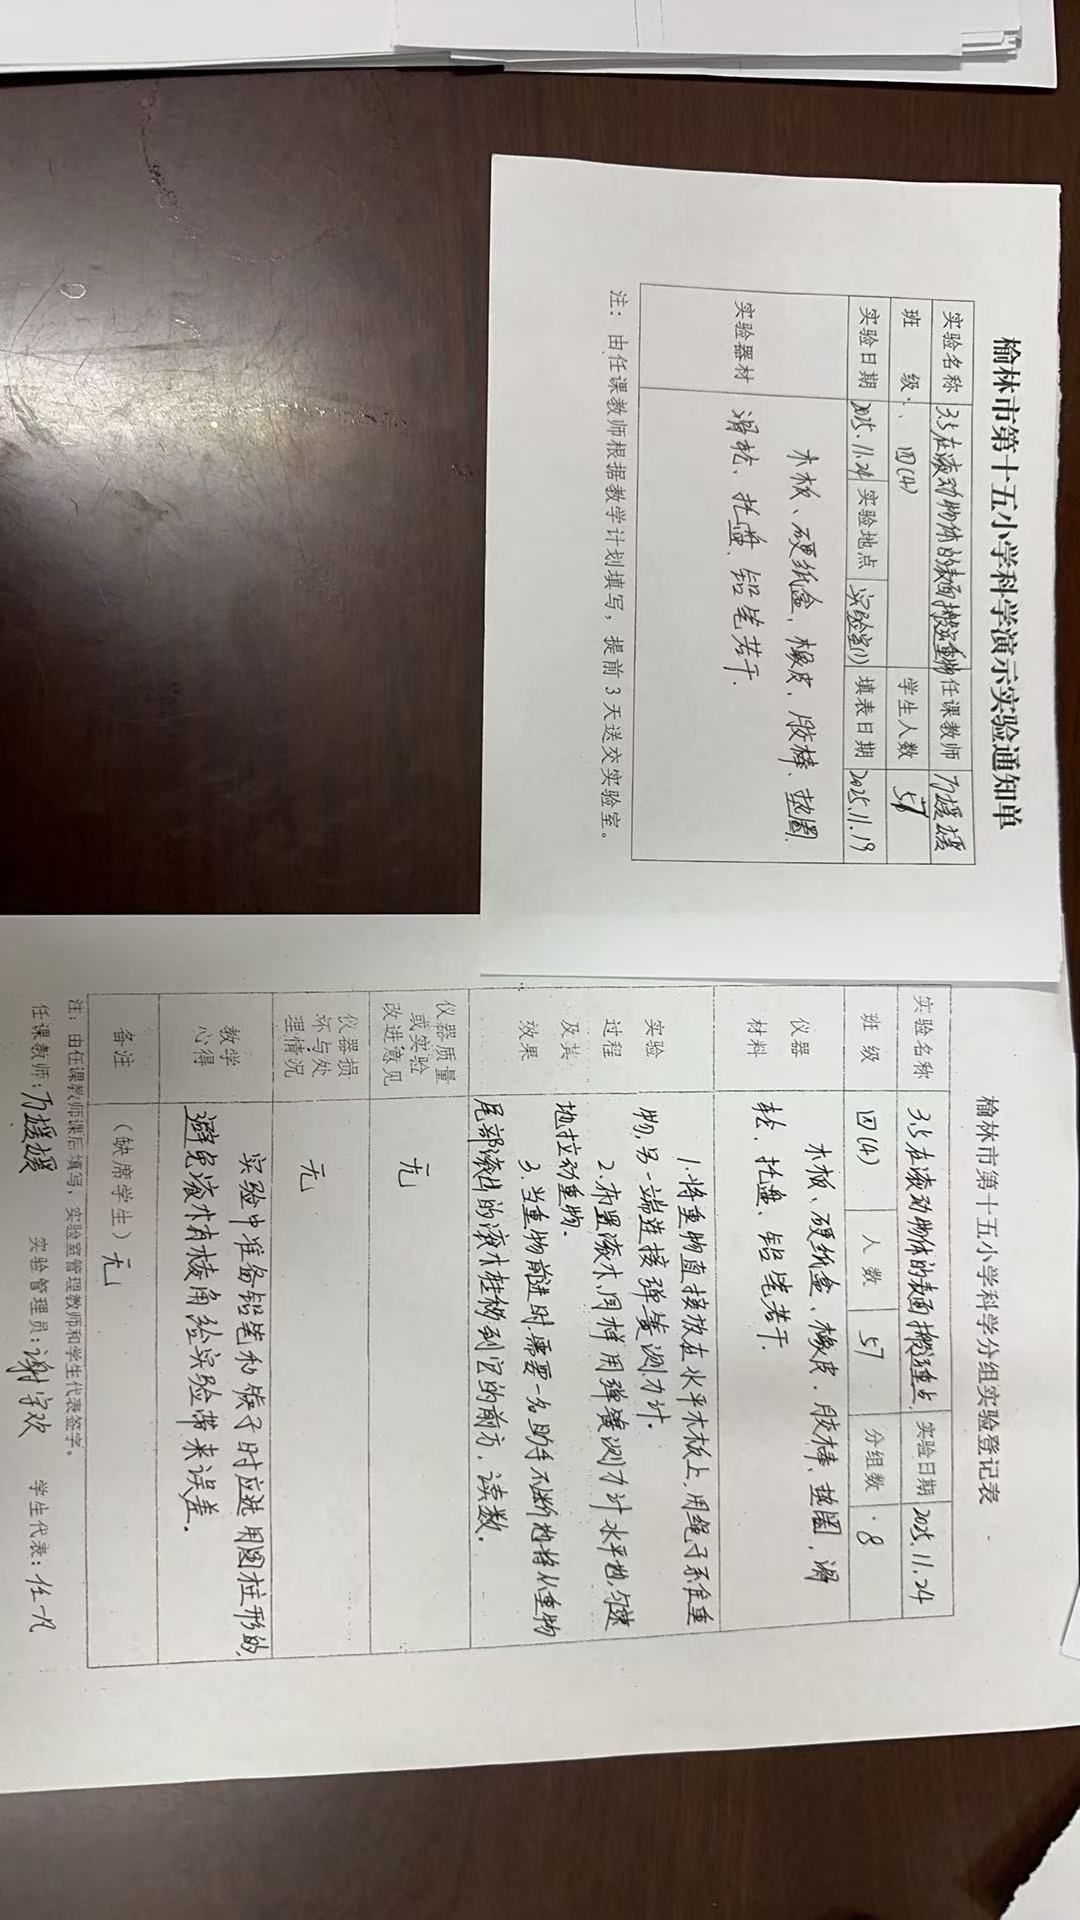 榆林市第十五小学科学演示实验通知单
实验名称 3.5在滚动物体的表面搬运重物 任课教师 万媛媛
班 级 四(4) 学生人数 57
实验日期 2025.11.24 实验地点 实验室(1) 填表日期 2025.11.19
实验器材
木板、硬纸盒、橡皮、胶棒、垫圈、
滑轮、托盘、铅笔若干.
注：由任课教师根据教学计划填写，提前3天送交实验室。
榆林市第十五小学科学分组实验登记表
实验名称 3.5在滚动物体的表面搬运重点 实验日期 2025.11.24
班 级 四(4) 人 数 57 分组数 8
仪器
材料
木板、硬纸盒、橡皮、胶棒、垫圈，滑
轮、托盘、铅笔若干.
实验
过程
及其
效果
1.将重物直接放在水平木板上,用绳子系住重
物,另一端连接弹簧测力计.
2.布置滚木,同样用弹簧测力计水平地,匀速
地拉动重物.
3.当重物前进时.需要一名助手不断地将从重物
尾部滚出的滚木挂物到它的前方，读数.
仪器质量
或实验
改进意见
无
仪器损
坏与处
理情况
无
教学
心得
实验中准备铅笔和筷子时应选用圆柱形的,
避免滚木有棱角给实验带来误差.
备注 （缺席学生）无
注：由任课教师课后填写，实验室管理教师和学生代表签字。
任课教师：万媛媛 实验管理员：谢宇欢 学生代表：任一凡